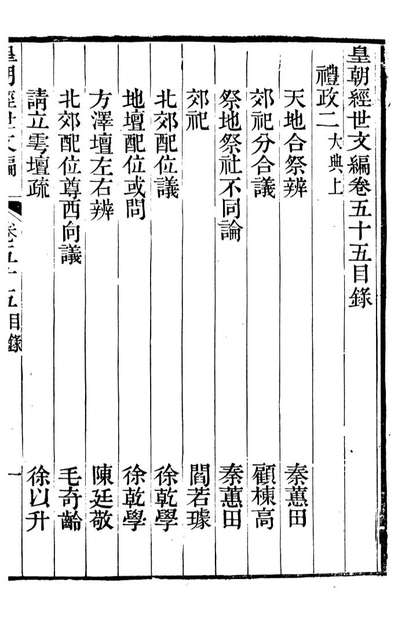 皇朝經世文編卷五十五目錄
禮政二大典上
天地合祭辨 秦蕙田
郊祀分合議 顧棟高
祭地祭社不同論 秦蕙田
郊祀 閻若璩
北郊配位議 徐乾學
地壇配位或問 徐乾學
方澤壇左右辨 陳廷敬
北郊配位尊西向議 毛奇齡
請立雩壇疏 徐以升
皇朝經世文編 卷五十五目錄 一